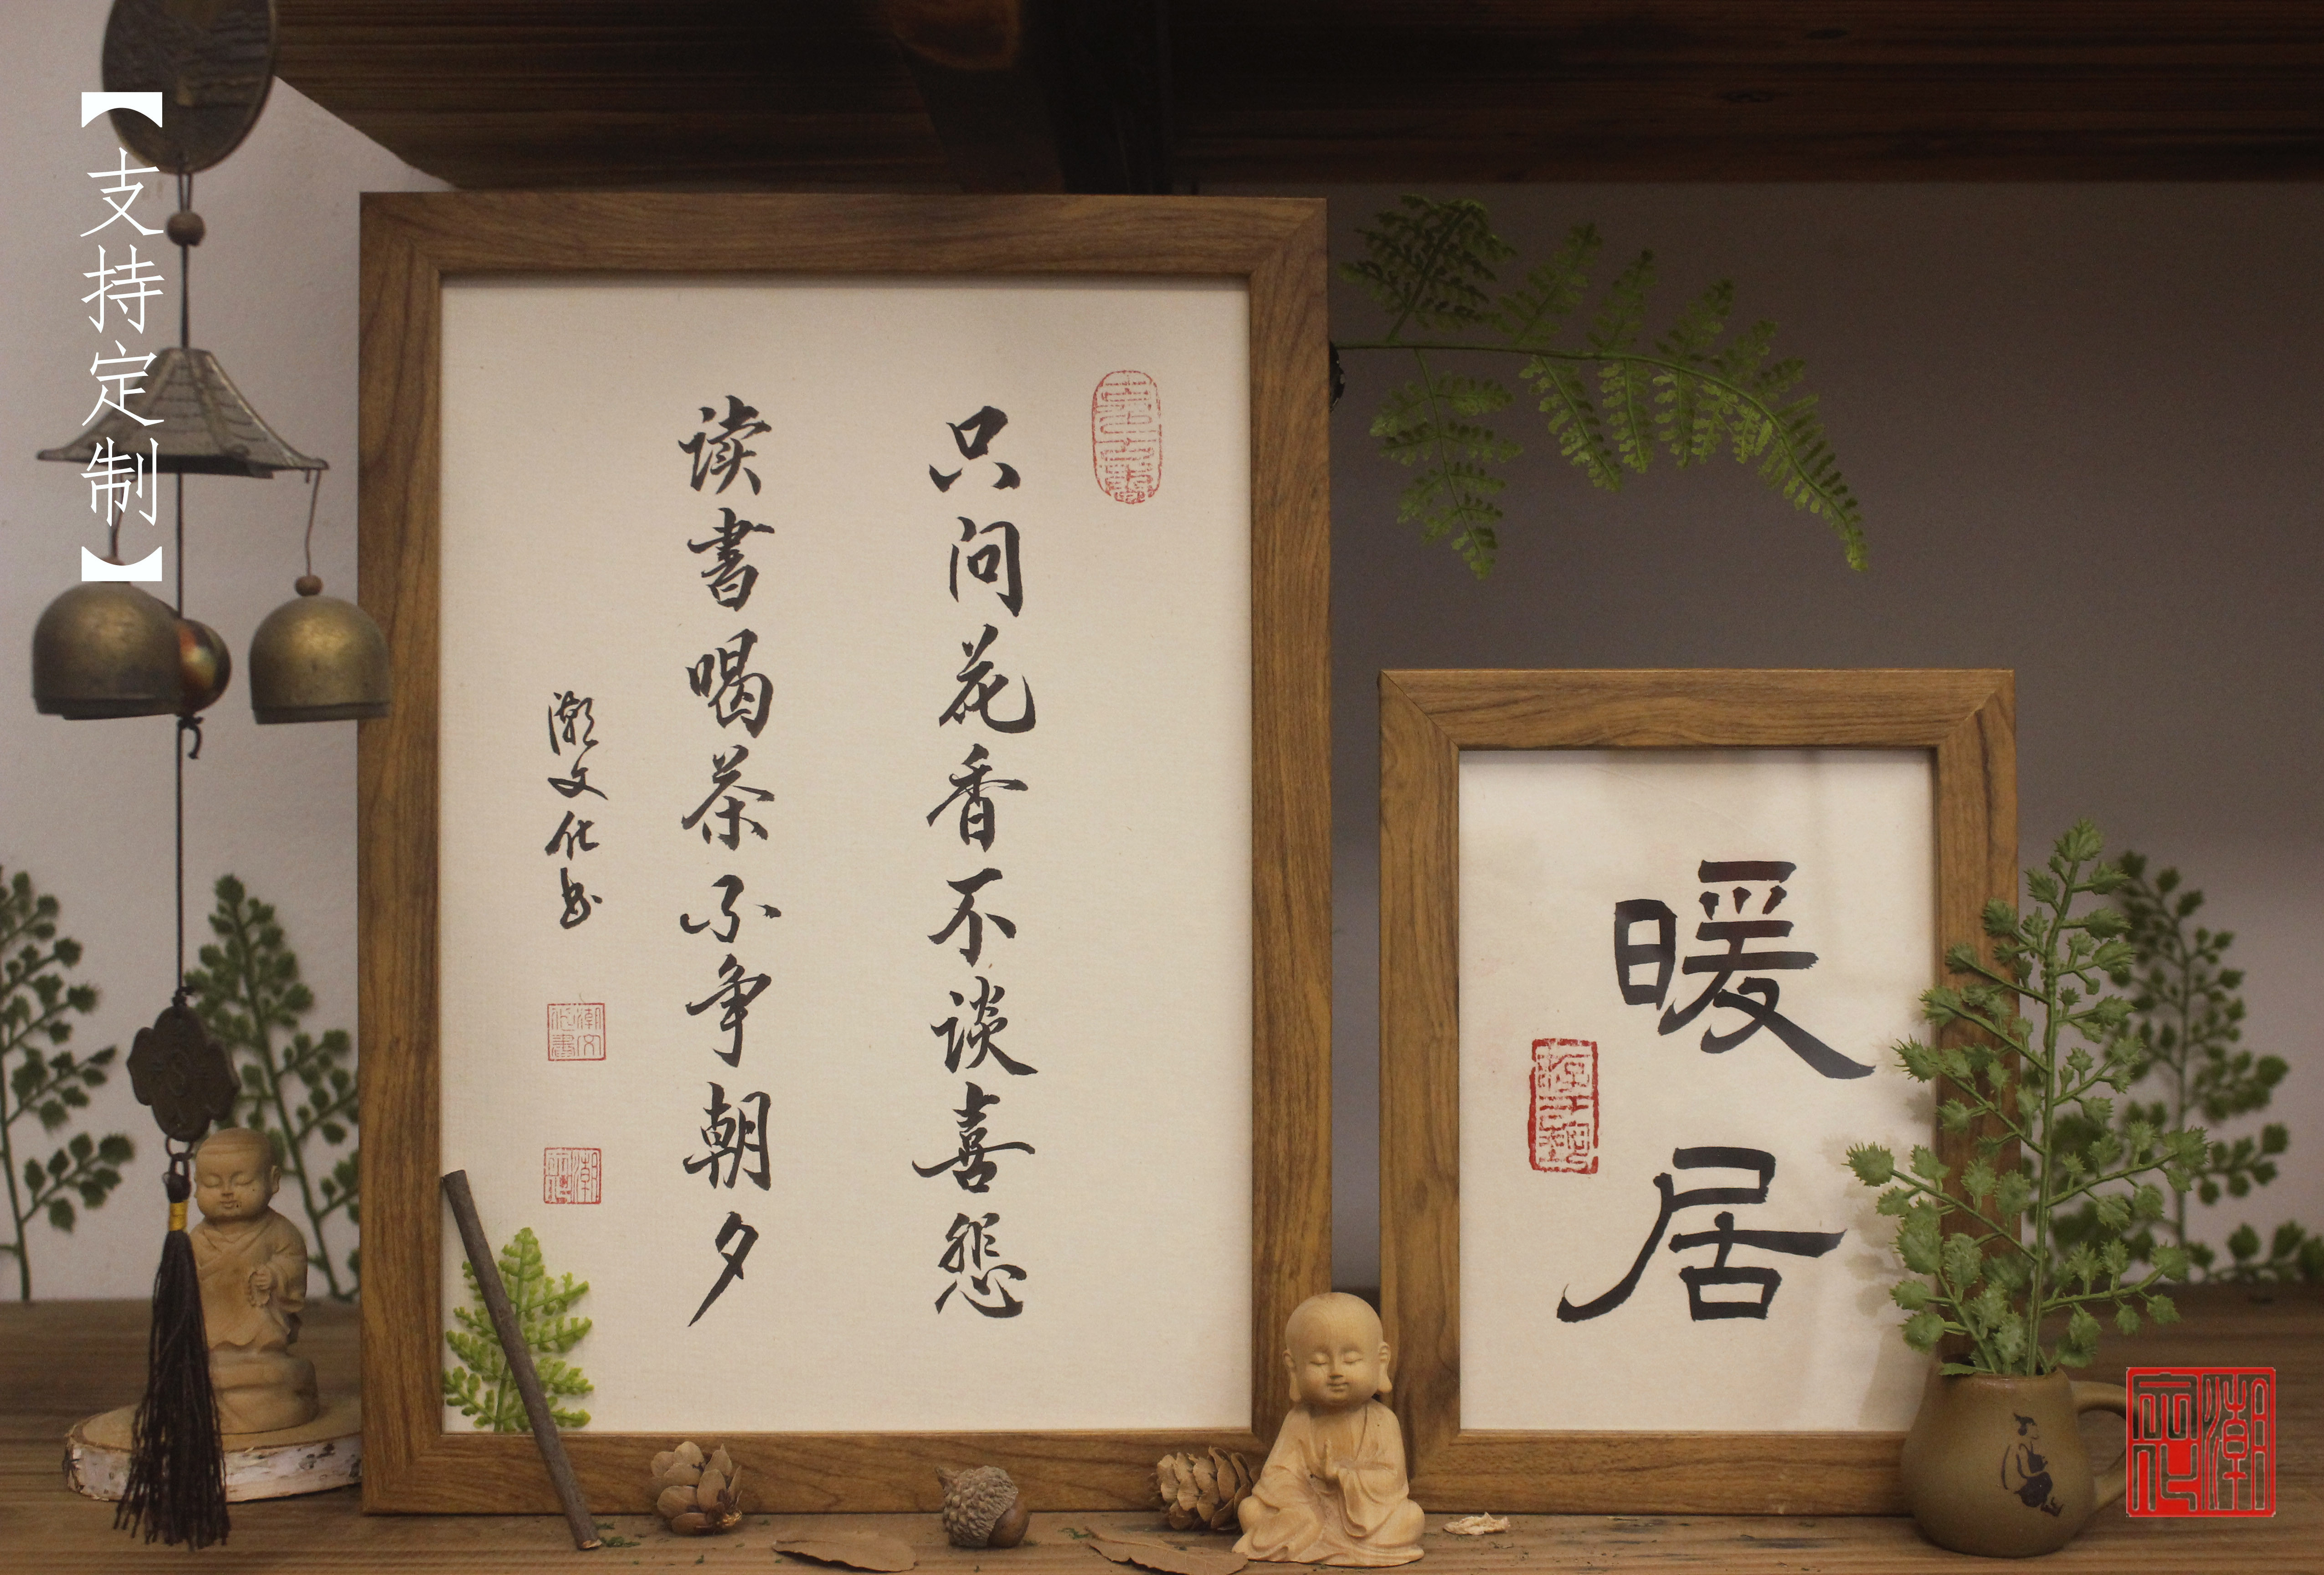 【支持定制】
只问花香不谈喜怨
读書喝茶不争朝夕
潮文化书
暖居